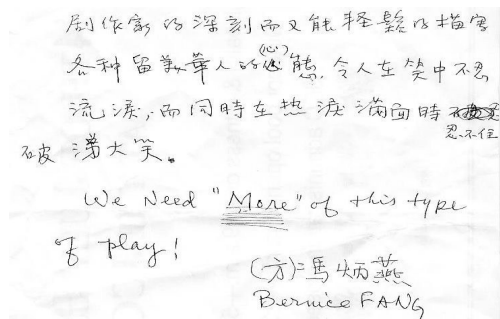 劇作家的深刻而又能輕鬆的描寫
各种留美華人的(心)態,令人在笑中不忍
流淚,而同時在热淚滿面時
忍不住
破涕大笑。
We Need "More" of this type
of play!
(方)馬炳燕
Bernice FANG